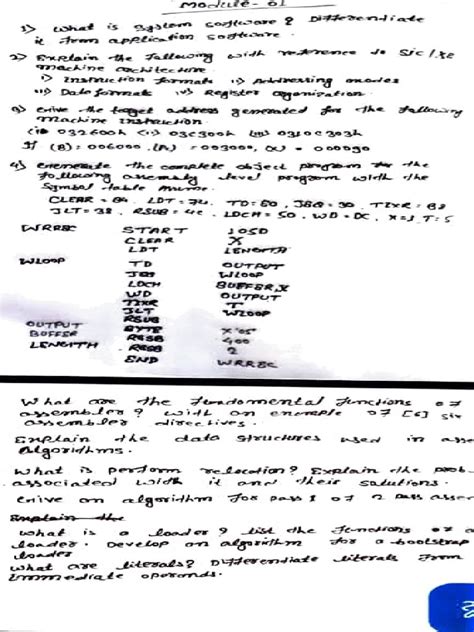 Module - 01
1) What is System software? Differentiate
it from application software.
2) Explain the following with reference to Sic/XE
machine architecture.
i) Instruction formats ii) Addressing modes
iii) Data formats iv) Register organization.
3) Give the target address generated for the following
machine instruction.
(i) 032600h (ii) 03C300h (iii) 0310C303h
If (B) = 006000, (PC) = 003000, (X) = 000090
4) Generate the complete object program for the
following assembly level program with the
Symbol table
CLEAR = B4, LDT = 74, TD = E0, JEQ = 30, TIXR = B8
JLT = 38, RSUB = 4C, LDCH = 50, WD = DC, X = 1, T = 5
WRREC START 105D
CLEAR X
LDT LENGTH
WLOOP TD OUTPUT
JEQ WLOOP
LDCH BUFFER,X
WD OUTPUT
TIXR T
JLT WLOOP
RSUB
OUTPUT BYTE X'05'
BUFFER RESB 400
LENGTH RESB 2
END WRREC
What are the fundamental functions of
assembler? with an example of [6] six
assembler directives.
Explain the data structures used in ass
Algorithms.
What is perform relocation? Explain the prob-
associated with it and their solutions.
Give an algorithm for pass 1 of 2 pass asse
Explain the
What is a loader? list the functions of a
loader. Develop an algorithm for a bootstrap
loader
What are literals? Differentiate literals from
immediate operands.